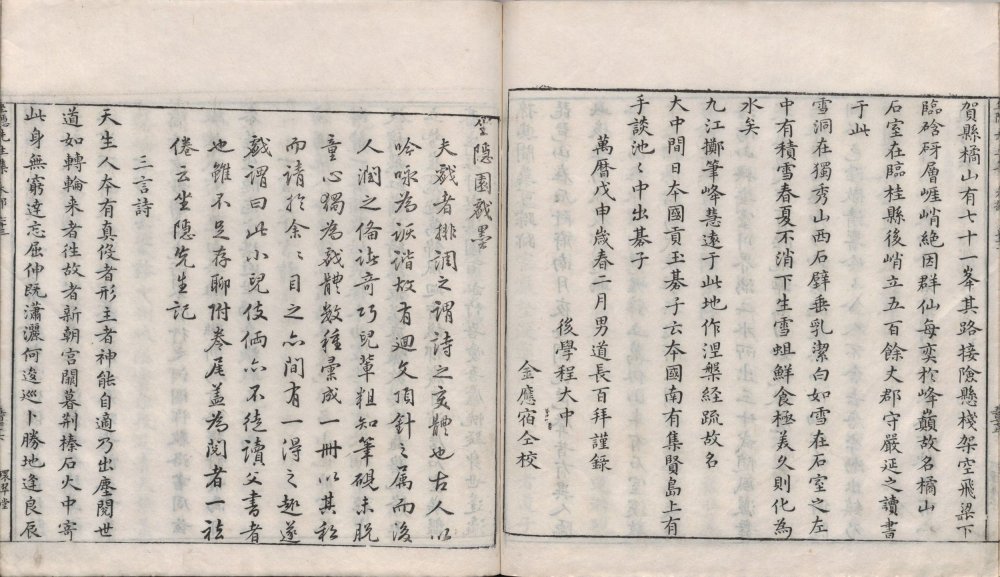 賀縣橘山有七十一峯其路接陰縣棧架空飛梁下
臨硆砑層崕峭絶因群仙每奕於峰巔故名橘山
石室在臨桂縣後峭立五百餘丈郡守嚴延之讀書
于此
雪洞在獨秀山西石壁垂乳潔白如雪在石室之左
中有積雪春夏不消下生雪蛆鮮食極美久則化為
水矣
九江擲筆峰慧遠于此地作涅槃経疏故名
大中間日本國貢玉棊子云本國南有集賢島上有
手談池〻中出棊子
萬曆戊申歲春二月男道長百拜謹錄
後學程大中
金應宿仝校
坐隱園戲墨
夫戲者排調之謂詩之變體也古人以
吟咏為詼諧故有廻文頂針之属而後
人澗之俻諸奇巧兒輩粗知筆硯未脫
童心獨為戲體數種彙成一冊以其私
而請於余〻目之亦間有一得之趣遂
戲謂曰此小兒伎倆亦不徒讀父書者
也雖不足存聊附卷尾盖為閱者一祛
倦云坐隱先生記
三言詩
天生人本有真役者形主者神能自適乃出塵閱世
道如轉輪来者徃故者新朝宮闕暮荆榛石火中寄
此身無窮達忘屈伸既瀟灑何逡巡卜勝地逢良辰
環翠堂